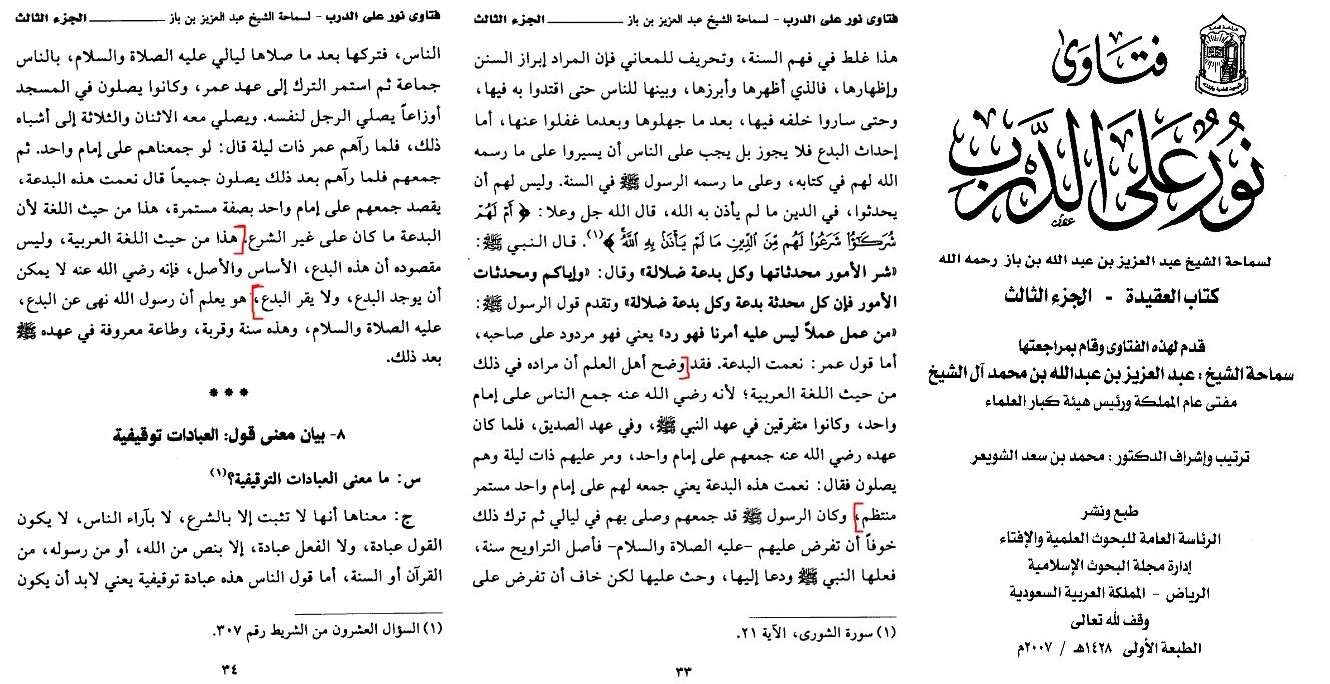 فتاوى
نور على الدرب
لسماحة الشيخ عبد العزيز بن عبد الله بن باز رحمه الله
كتاب العقيدة - الجزء الثالث
قدم لهذه الفتاوى وقام بمراجعتها
سماحة الشيخ : عبد العزيز بن عبدالله بن محمد آل الشيخ
مفتى عام المملكة ورئيس هيئة كبار العلماء
ترتيب وإشراف الدكتور : محمد بن سعد الشويعر
طبع ونشر
الرئاسة العامة للبحوث العلمية والإفتاء
إدارة مجلة البحوث الإسلامية
الرياض - المملكة العربية السعودية
وقف لله تعالى
الطبعة الأولى ١٤٢٨هـ / ٢٠٠٧م
فتاوى نور على الدرب - لسماحة الشيخ عبد العزيز بن باز ـــــــــ الجزء الثالث
هذا غلط في فهم السنة، وتحريف للمعاني فإن المراد إبراز السنن
وإظهارها، فالذي أظهرها وأبرزها، وبينها للناس حتى اقتدوا به فيها،
وحتى ساروا خلفه فيها، بعد ما جهلوها وبعدما غفلوا عنها، أما
إحداث البدع فلا يجوز بل يجب على الناس أن يسيروا على ما رسمه
الله لهم في كتابه، وعلى ما رسمه الرسول ﷺ في السنة. وليس لهم أن
يحدثوا، في الدين ما لم يأذن به الله، قال الله جل وعلا: ﴿ أَمْ لَهُمْ
شُرَكَٰٓؤُا۟ شَرَعُوا۟ لَهُم مِّنَ ٱلدِّينِ مَا لَمْ يَأْذَنۢ بِهِ ٱللَّهُ ﴾(١). قال النبي ﷺ:
«شر الأمور محدثاتها وكل بدعة ضلالة» وقال: «وإياكم ومحدثات
الأمور فإن كل محدثة بدعة وكل بدعة ضلالة» وتقدم قول الرسول ﷺ:
«من عمل عملاً ليس عليه أمرنا فهو رد» يعني فهو مردود على صاحبه،
أما قول عمر: نعمت البدعة. فقد وضح أهل العلم أن مراده في ذلك
من حيث اللغة العربية؛ لأنه رضي الله عنه جمع الناس على إمام
واحد، وكانوا متفرقين في عهد النبي ﷺ، وفي عهد الصديق، فلما كان
عهده رضي الله عنه جمعهم على إمام واحد، ومر عليهم ذات ليلة وهم
يصلون فقال: نعمت هذه البدعة يعني جمعه لهم على إمام واحد مستمر
منتظم، وكان الرسول ﷺ قد جمعهم وصلى بهم في ليالي ثم ترك ذلك
خوفاً أن تفرض عليهم -عليه الصلاة والسلام- فأصل التراويح سنة،
فعلها النبي ﷺ ودعا إليها، وحث عليها لكن خاف أن تفرض على
(١) سورة الشورى، الآية ٢١.
٣٣
فتاوى نور على الدرب - لسماحة الشيخ عبد العزيز بن باز ـــــــــ الجزء الثالث
الناس، فتركها بعد ما صلاها ليالي عليه الصلاة والسلام، بالناس
جماعة ثم استمر الترك إلى عهد عمر، وكانوا يصلون في المسجد
أوزاعاً يصلي الرجل لنفسه. ويصلي معه الاثنان والثلاثة إلى أشباه
ذلك، فلما رآهم عمر ذات ليلة قال: لو جمعناهم على إمام واحد. ثم
جمعهم فلما رآهم بعد ذلك يصلون جميعاً قال نعمت هذه البدعة،
يقصد جمعهم على إمام واحد بصفة مستمرة، هذا من حيث اللغة لأن
البدعة ما كان على غير الشرع، هذا من حيث اللغة العربية، وليس
مقصوده أن هذه البدع، الأساس والأصل، فإنه رضي الله عنه لا يمكن
أن يوجد البدع، ولا يقر البدع، هو يعلم أن رسول الله نهى عن البدع،
عليه الصلاة والسلام، وهذه سنة وقربة، وطاعة معروفة في عهده ﷺ
بعد ذلك.
***
٨- بيان معنى قول: العبادات توقيفية
س: ما معنى العبادات التوقيفية؟(١)
ج: معناها أنها لا تثبت إلا بالشرع، لا بآراء الناس، لا يكون
القول عبادة، ولا الفعل عبادة، إلا بنص من الله، أو من رسوله، من
القرآن أو السنة، أما قول الناس هذه عبادة توقيفية يعني لابد أن يكون
(١) السؤال العشرون من الشريط رقم ٣٠٧.
٣٤